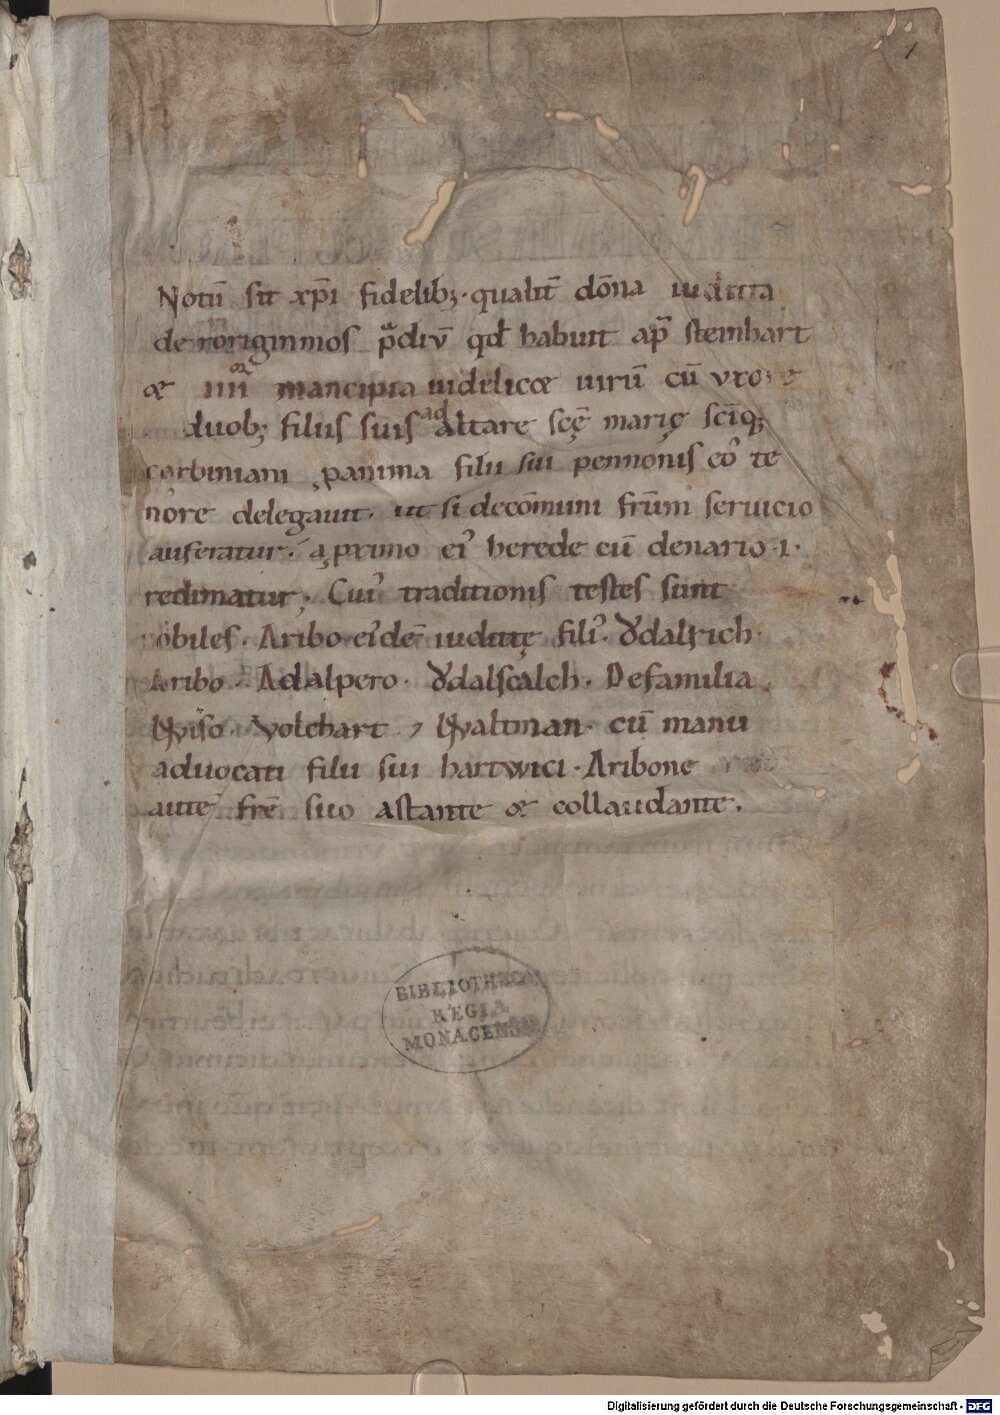 1
Notū sit xp̄i fidelibꝫ · qualit̄ dōna iuditta
de roriginmos p̄diū qd̄ habuit ap̄ steinhart
æ iiiiᵒʳ mancipia uidelicæ uirū cū uxore
duobꝫ filiis suis ad altare scę̄ marię scīqꝫ
corbiniani ꝓ anima filii sui pennonis eoꝰ te
nore delegauit · ut si decōmuni fr̄m seruicio
auferatur · a ꝓximo eiꝰ herede cū denario · i ·
redimatur ; Cuiꝰ traditionis testes sunt
nobiles · Aribo eiꝰdē iudittę filiꝰ · Ŏdalrich ·
Aribo · Adalpero · Ŏdalscalch · De familia
Wiso · Volchart , Waltman · cū manu
aduocati filii sui hartwici · Aribone
autē fr̄e suo astante æ collaudante .
BIBLIOTHECA
REGIA
MONACENSIS
Digitalisierung gefördert durch die Deutsche Forschungsgemeinschaft - DFG